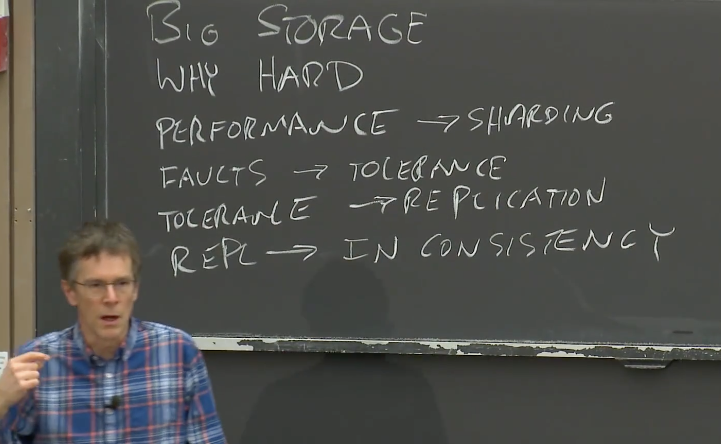 BIG STORAGE
WHY HARD
PERFORMANCE → SHARDING
FAULTS → TOLERANCE
TOLERANCE → REPLICATION
REPL → IN CONSISTENCY